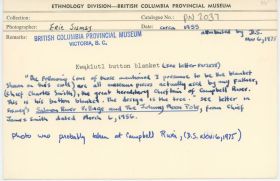 ETHNOLOGY DIVISION—BRITISH COLUMBIA PROVINCIAL MUSEUM
Collection: Catalogue No.: PN 2037
Photographer: Eric Sismey Date: circa 1955 attributed by D.S.
Nov 6, 1975
BRITISH COLUMBIA PROVINCIAL MUSEUM
VICTORIA, B. C.
Kwakiutl button blanket (see letter
"The following (one of those mentioned I presume to be the blanket
shown in this card) are all museum pieces actually used by my father,
(Chief Charles Smith), the great hereditary Chieftain of Campbell River.
This is his button blanket. The design is the tree." see letter in
Sismey's Salmon River Village and The Totem Pole, from Chief
James Smith dated March 6, 1956.
Photo was probably taken at Campbell River, (D.S. Nov. 6, 1975)